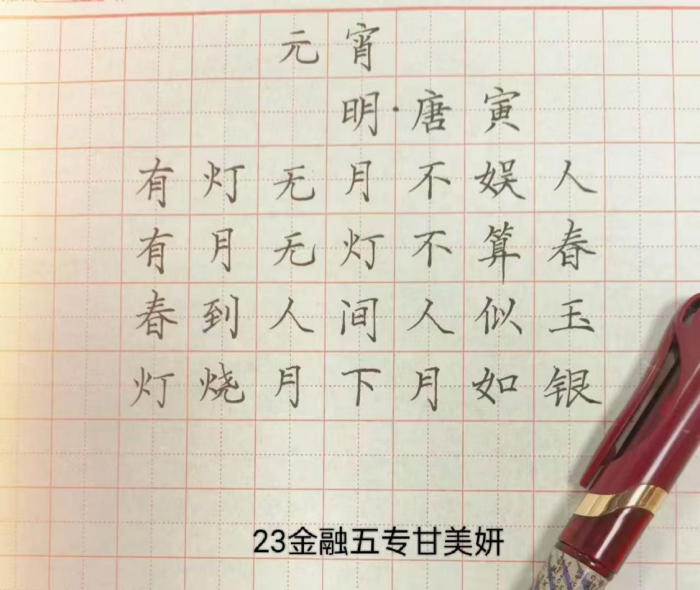 元宵
明·唐寅
有灯无月不娱人
有月无灯不算春
春到人间人似玉
灯烧月下月如银
23金融五专甘美妍